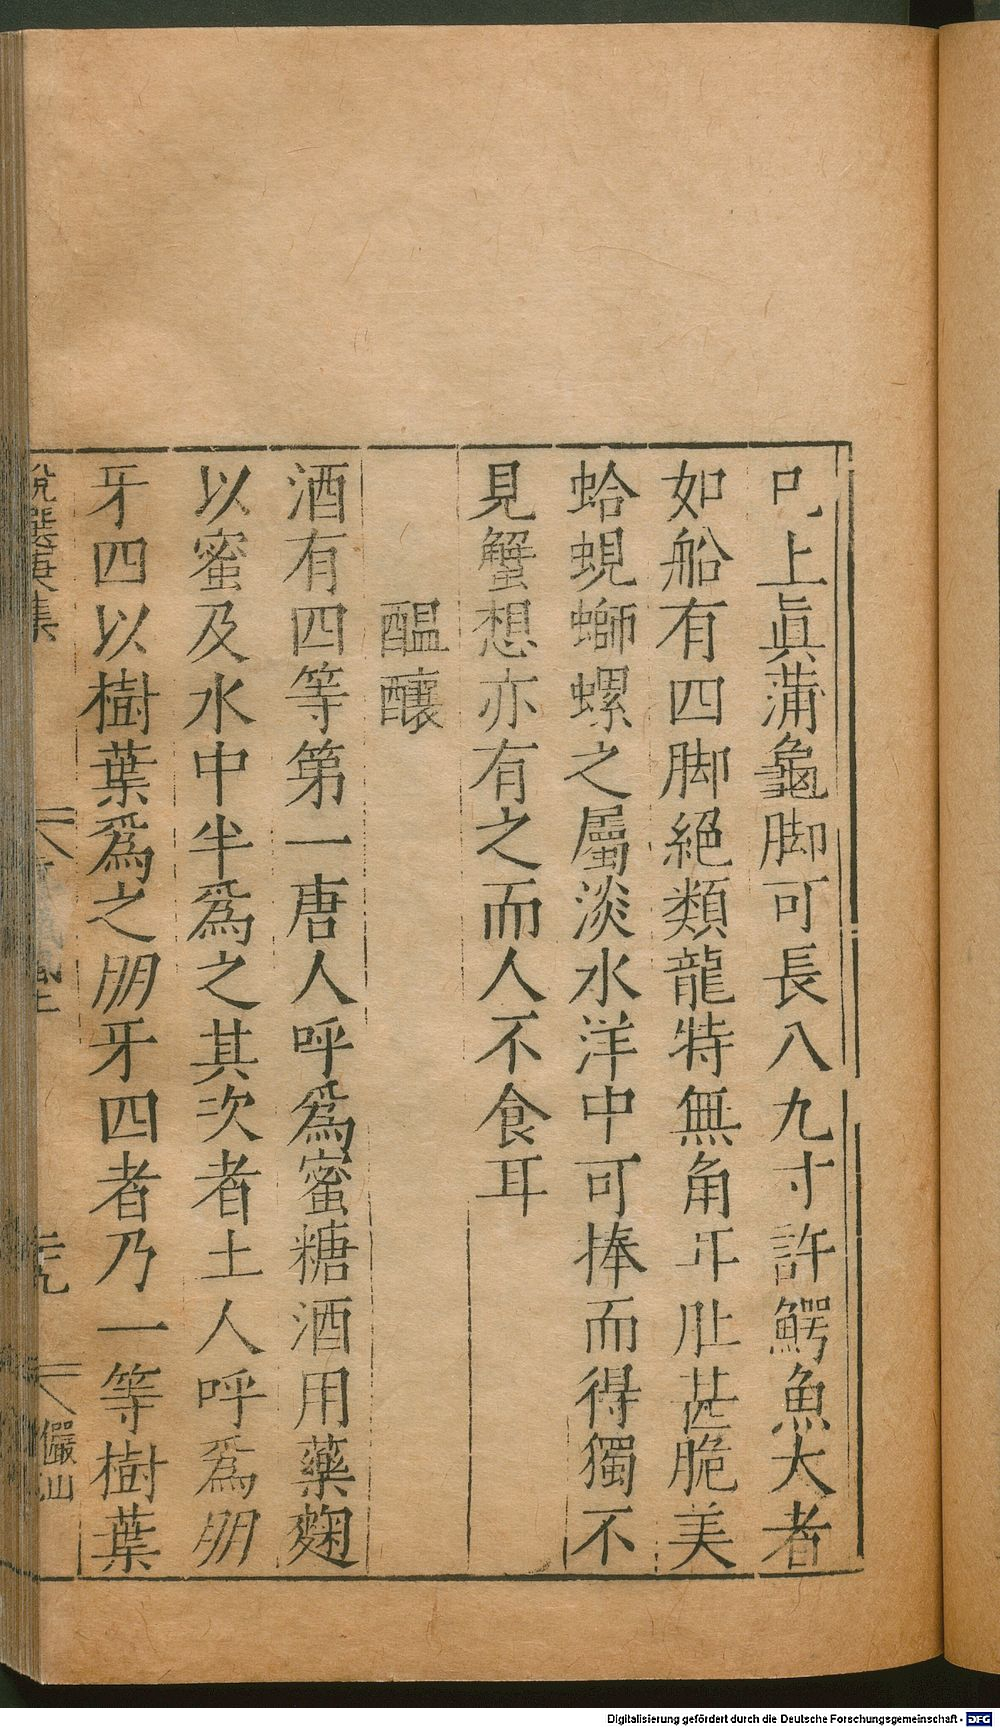 上眞蒲龜脚可長八九寸許鰐魚大者
如船有四脚絕類龍特無角耳肚甚脆美
蛤蜆螄螺之屬淡水洋中可捧而得獨不
見蟹想亦有之而人不食耳
醖釀
酒有四等第一唐人呼爲蜜糖酒用藥麴
以蜜及水中半爲之其次者土人呼爲朋
牙四以樹葉爲之朋牙四者乃一等樹葉
說選庚集
儼山
Digitalisierung gefördert durch die Deutsche Forschungsgemeinschaft - DFG